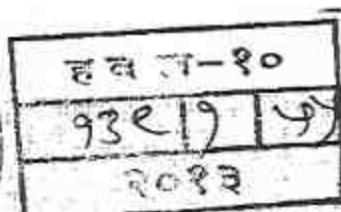 हवन-१०
१३९|१|५५
२०१३